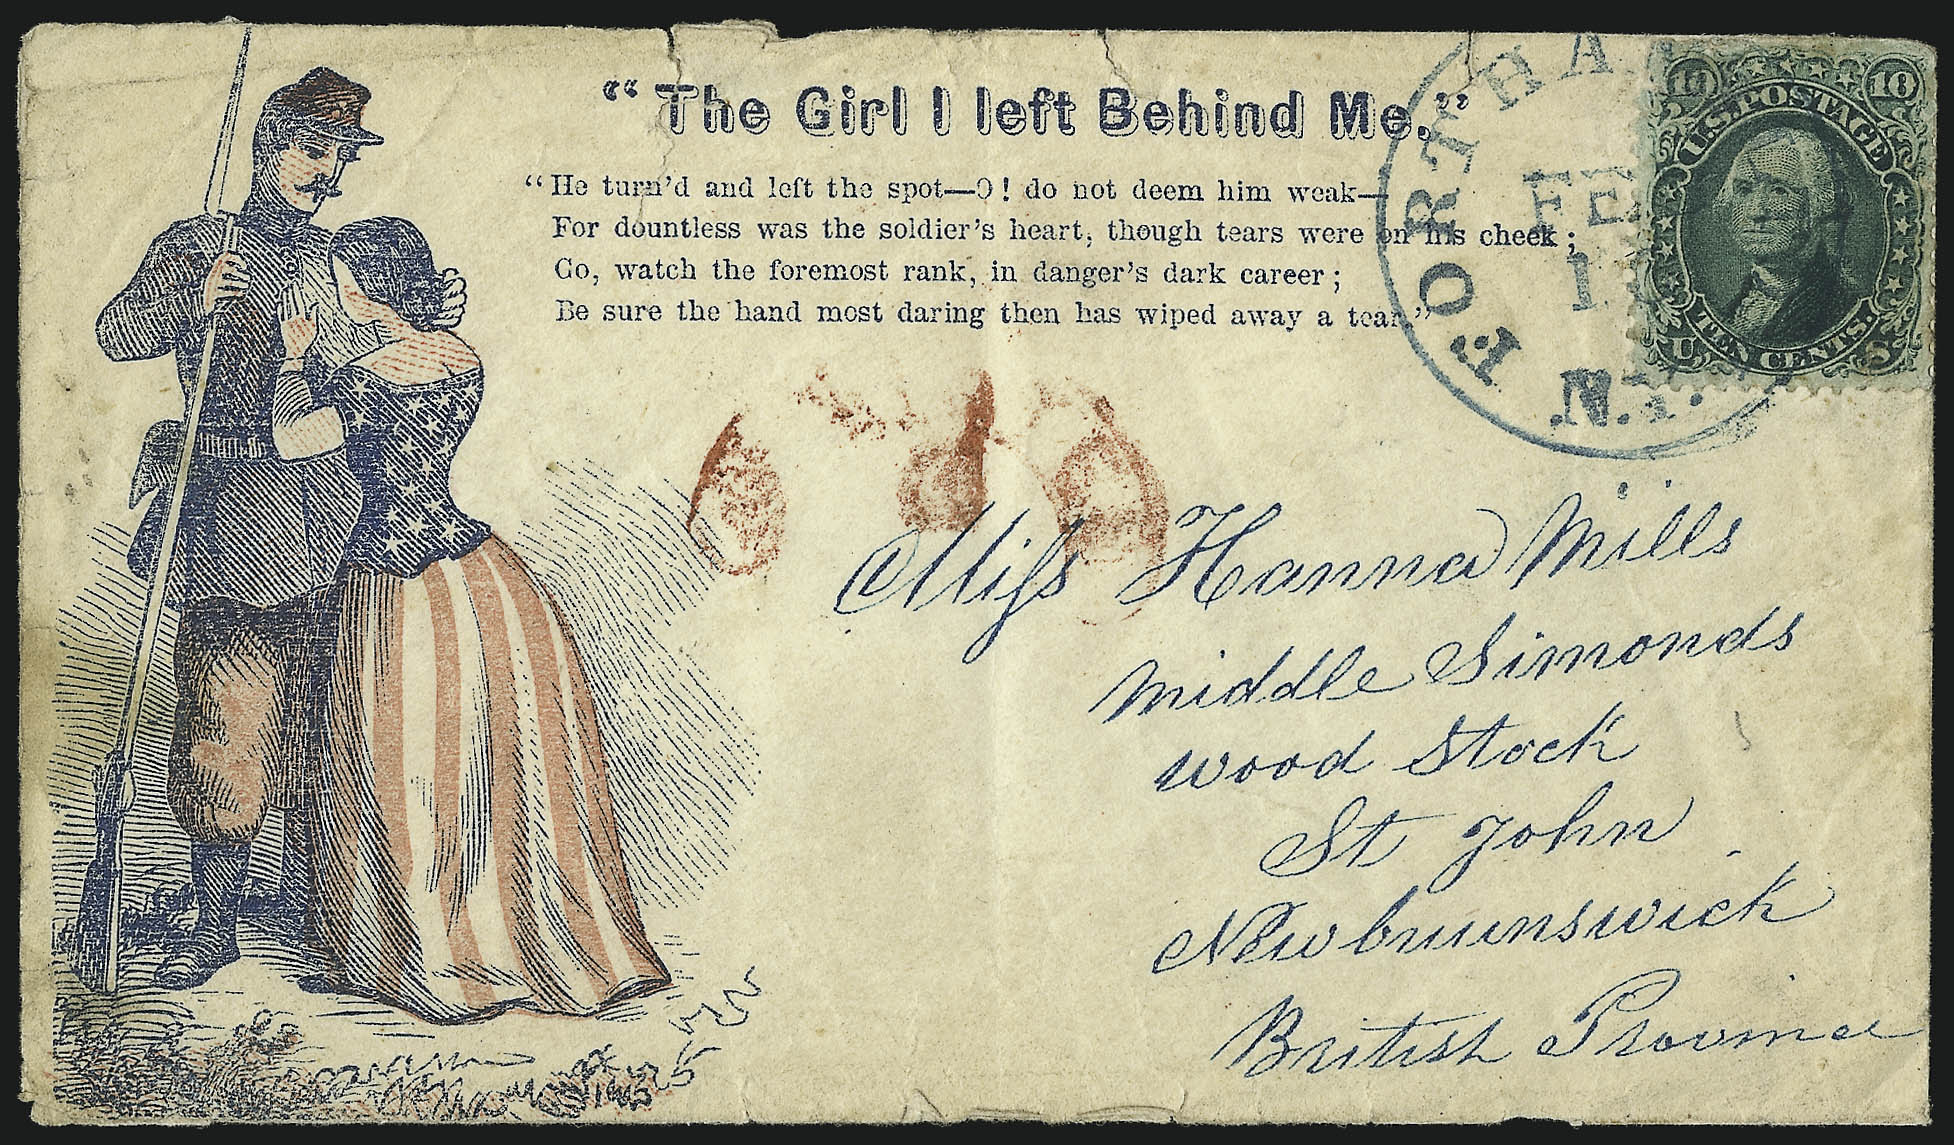 "The Girl I left Behind Me."
"He turn'd and left the spot—O! do not deem him weak—
For dountless was the soldier's heart, though tears were on his cheek;
Go, watch the foremost rank, in danger's dark career;
Be sure the hand most daring then has wiped away a tear."
FORT HA
FE
1
N.Y.
10 10
U.S. POSTAGE
TEN CENTS.
U S
Miss Hanna Mills
Middle Simonds
wood Stock
St John
Newbruunswick
British Province